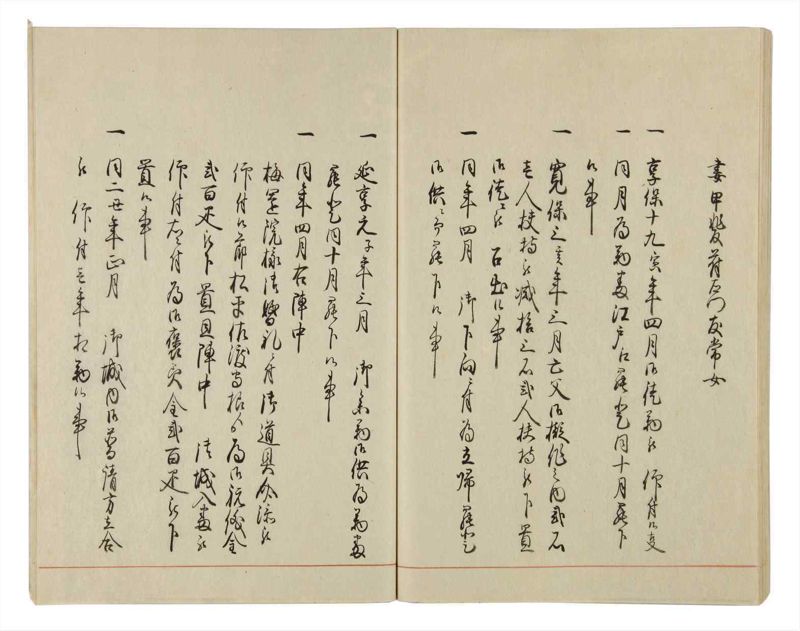 妻甲斐荷右衛門友常女
一 享保十九寅年四月御徒勤被 仰付候事
一 同月為勤番江戸江罷登同十月罷下
候事
一 寛保三亥年三月亡父御擬作之内弐石
壱人扶持被減拾三石弐人扶持被下置
御徒被 召出候事
一 同年四月 御下向ニ付為立帰罷登
御供ニ而罷下候事
一 延享元子年三月 御参勤御供為勤番
罷登同十月罷下候事
一 同年四月右陣中
梅 院様御婚礼ニ付御道具
仰付候節松平佐渡守様より為御祝儀金
弐百疋被下置且陣中 御城入番被
仰付右ニ付為御褒美金弐百疋被下
置候事
一 同二丑年正月 御城内御普請方立合
被 仰付壱年相勤候事